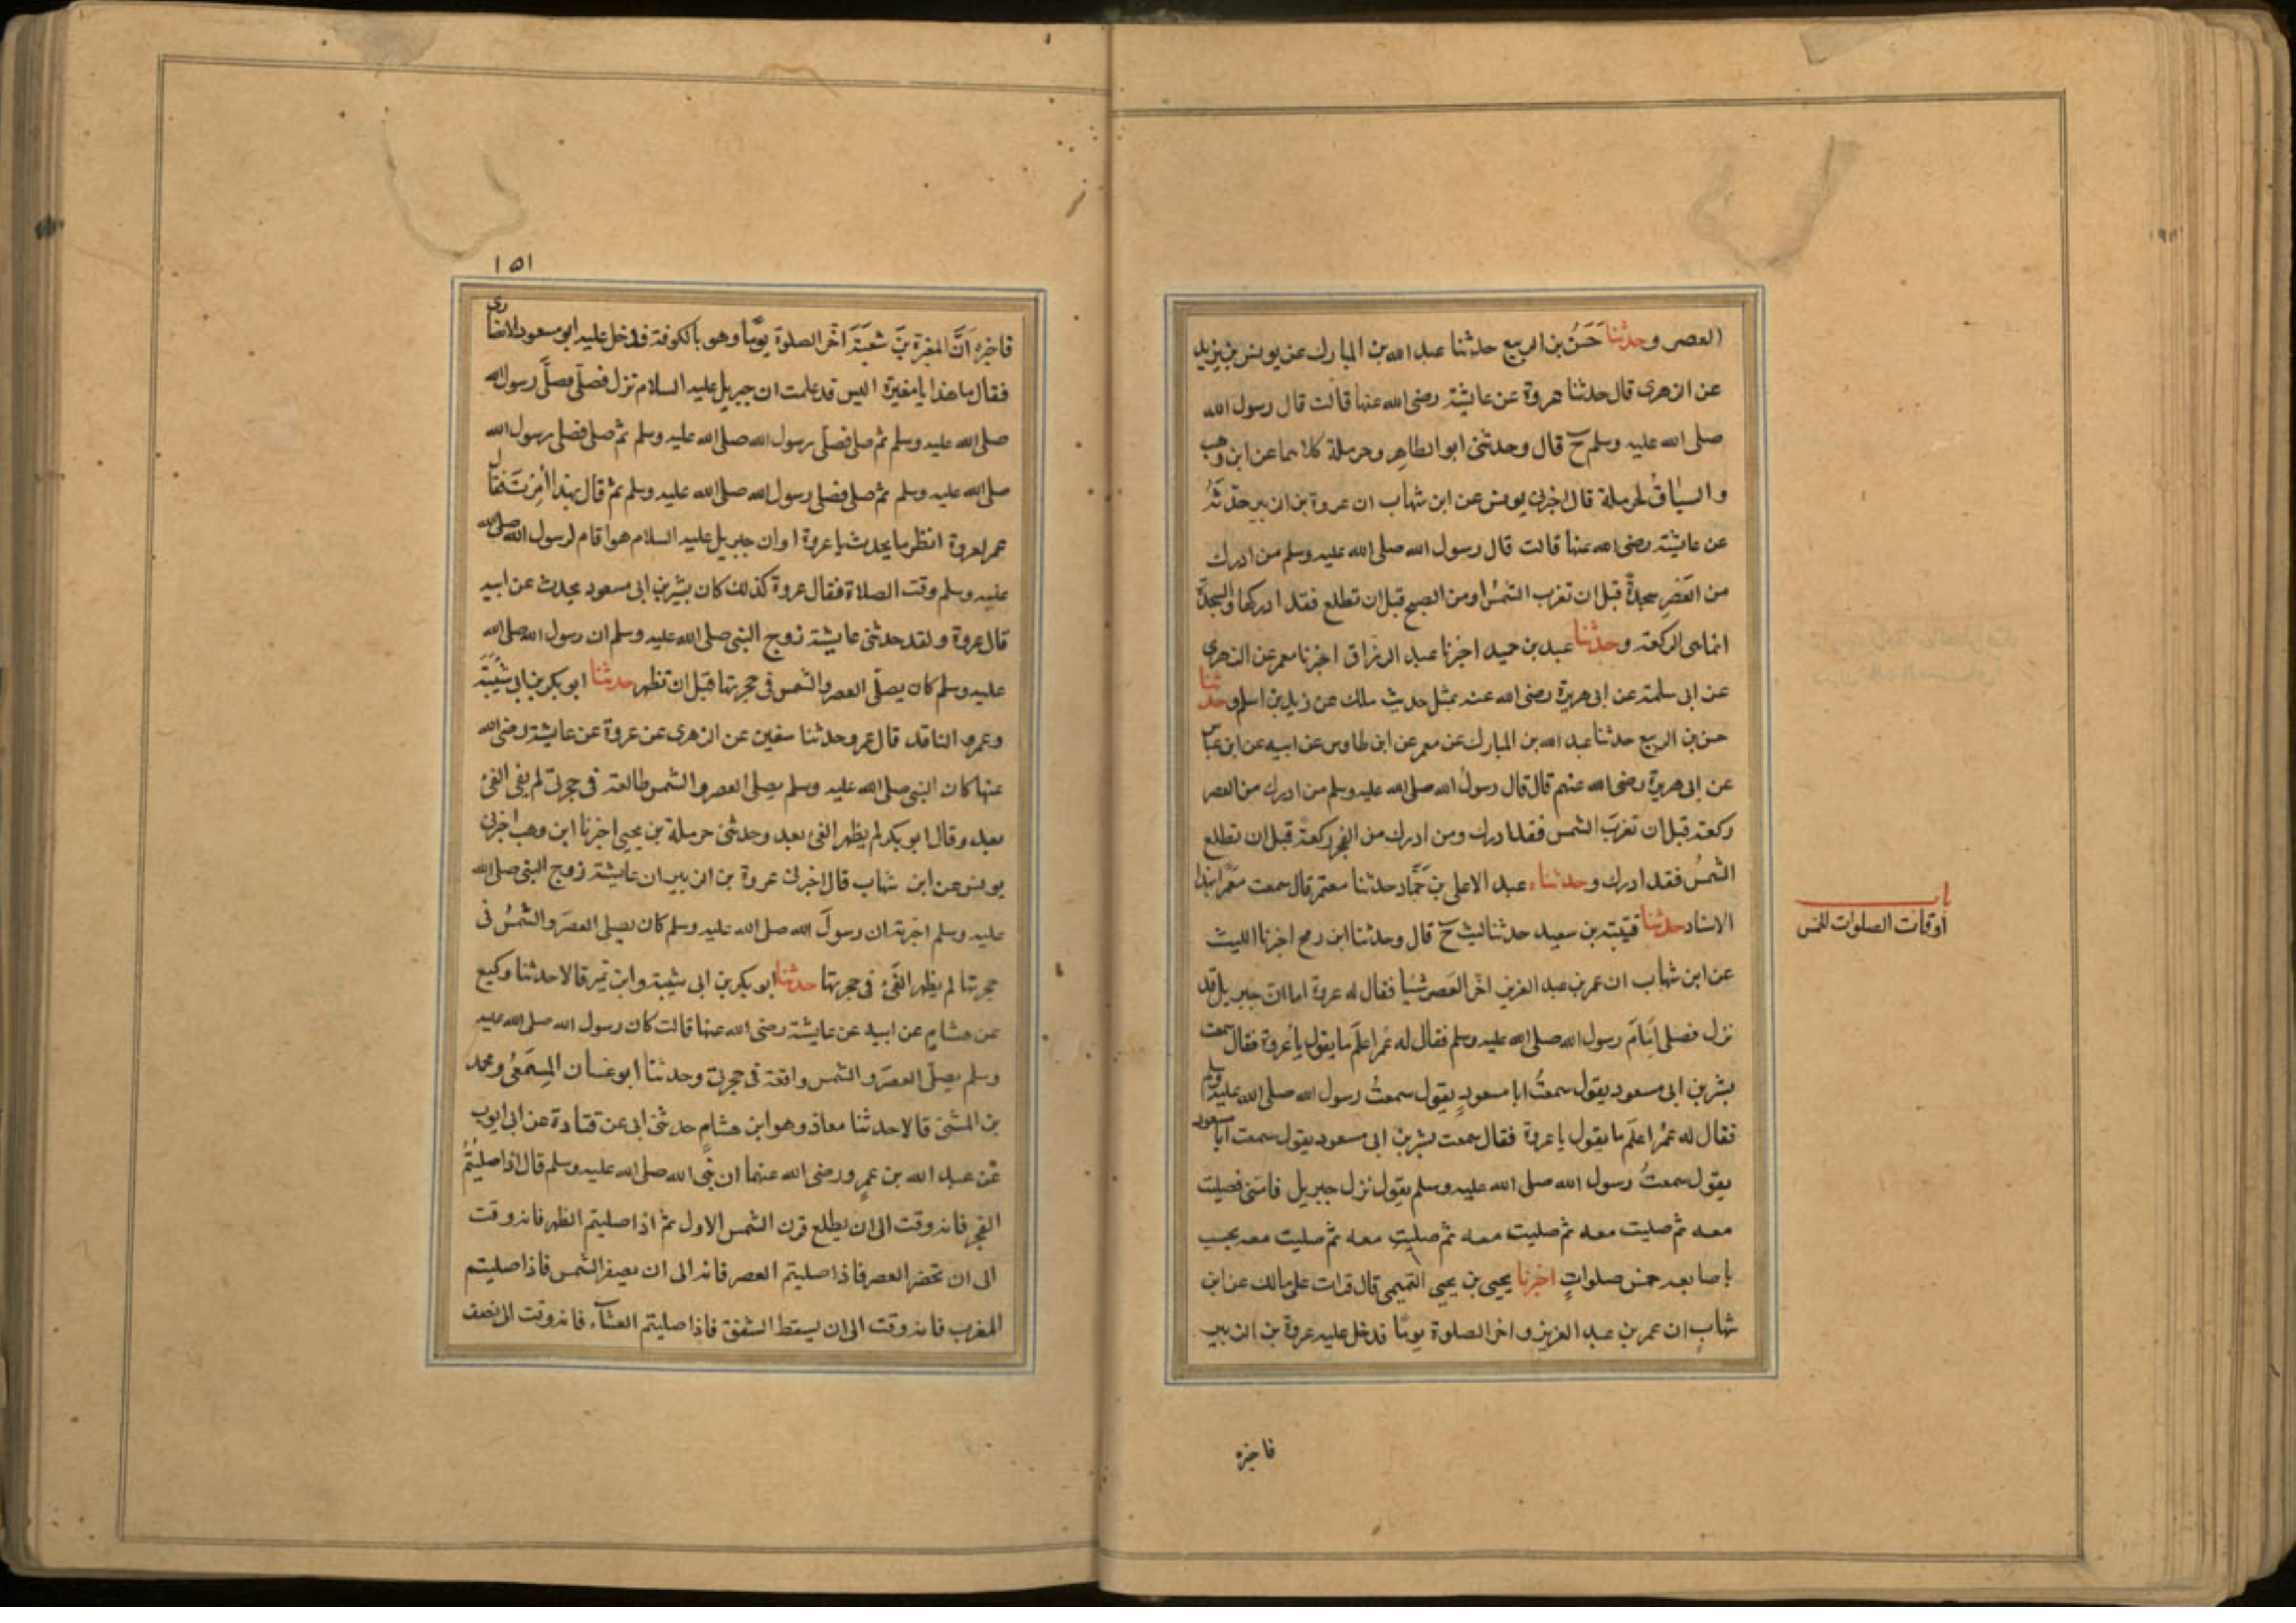 العصر وحدثنا حَسَنُ بن الربيع حدثنا عبد الله بن المبارك عن يونس بن يزيد
عن الزهرى قال حدثنا عروة عن عايشة رضى الله عنها قالت قال رسول الله
صلى الله عليه وسلم ح قال وحدثنى ابو الطاهر وحرملة كلاهما عن ابن وهب
والسياقُ لحرملة قال اخبرنى يونس عن ابن شهاب ان عروة بن الزبير حدّثهُ
عن عايشة رضى الله عنها قالت قال رسول الله صلى الله عليه وسلم من ادرك
من العَصْرِ سجدةً قبل ان تغرب الشمسُ او من الصبح قبل ان تطلع فقد ادركها والسجدة
انما هى الركعة وحدثنا عبد بن حميد اخبرنا عبد الرزاق اخبرنا معمر عن الزهرى
عن ابى سلمة عن ابى هريرة رضى الله عنه بمثل حديث مالك عن زيد بن اسلم وحدثنا
حسن بن الربيع حدثنا عبد الله بن المبارك عن معمر عن ابن طاوس عن ابيه عن ابن عباس
عن ابى هريرة رضى الله عنهم قال قال رسولُ الله صلى الله عليه وسلم من ادرك من العصر
ركعة قبل ان تغربَ الشمس فقد ادرك ومن ادرك من الفجر ركعة قبل ان تطلع
الشمسُ فقد ادرك وحدثناه عبد الاعلى بن حَمَّاد حدثنا معتمر قال سمعت معمرا بهذا
الاسناد حدثنا قتيبة بن سعيد حدثنا ليث ح قال وحدثنا ابن رمح اخبرنا الليث
عن ابن شهاب ان عمر بن عبد العزيز اخّر العَصر شيا فقال له عروة اما ان جبريل قد
نزل فصلى اِمامَ رسول الله صلى الله عليه وسلم فقال له عُمر اعلَم ما يقول يا عُروة فقال سمعت
بشر بن ابى مسعود يقول سمعتُ ابا مسعودٍ يقول سمعتُ رسول الله صلى الله عليه وسلم
فقال له عمُر اعلَم ما يقول يا عروة فقال سمعت بشر بن ابى مسعود يقول سمعت ابا مسعود
يقول سمعتُ رسول الله صلى الله عليه وسلم يقول نزل جبريل فامّنى فصليت
معه ثم صليت معه ثم صليت معه ثم صليت معه ثم صليت معه يحسب
باصابعه خمس صلواتٍ اخبرنا يحيى بن يحيى التميمى قال قرات على مالك عن ابن
شهابٍ ان عمر بن عبد العزيز واخر الصلوة يومًا فدخل عليه عروة بن الزبير
فاخبره
باب
اوقات الصلوات الخمس
١٥١
فاخبره اَنَّ المغيرة بنَ شعبَةَ اخّر الصلوة يومًا وهو بالكوفة فدخل عليه ابو مسعود الانصارى
فقال ما هذا يا مغيرة اليس قد علمت ان جبريل عليه السلام نزل فصلّى فصلَّى رسول الله
صلى الله عليه وسلم ثم صلى فصلّى رسول الله صلى الله عليه وسلم ثم صلى فصلى رسول الله
صلى الله عليه وسلم ثم صلى فصلى رسول الله صلى الله عليه وسلم ثم قال بهذا اُمِرْتَ فقال
عمر لعروة انظر ما يحدث يا عروة اوان جبريل عليه السلام هو اقام لرسول الله صلى الله
عليه وسلم وقت الصلاة فقال عروة كذلك كان بشير بن ابى مسعود يحدث عن ابيه
قال عروة ولقد حدثنى عايشة زوج النبى صلى الله عليه وسلم ان رسول الله صلى الله
عليه وسلم كان يصلّى العصر والشمس فى حجرتها قبل ان تظهر حدثنا ابو بكر بن ابى شَيْبَةَ
وعمرو الناقد قال عمرو حدثنا سفين عن الزهرى عن عروة عن عايشة رضى الله
عنها كان النبى صلى الله عليه وسلم يصلى العصر والشمس طالعة فى حجرتى لم يفى الفئ
بعد وقال ابو بكر لم يظهر الفئ بعد وحدثنى حرملة بن يحيى اخبرنا ابن وهب اخبرنى
يونس عن ابن شهاب قال اخبرنى عروة بن الزبير ان عايشة زوج النبى صلى الله
عليه وسلم اخبرته ان رسولَ الله صلى الله عليه وسلم كان يصلى العصَر والشمسُ فى
حجرتها لم يظهر الفَئ فى حجرتها حدثنا ابو بكر بن ابى شيبة وابن نمير قالا حدثنا وكيع
عن هشامٍ عن ابيه عن عايشة رضى الله عنها قالت كان رسول الله صلى الله عليه
وسلم يصلّى العصَر والشمس واقعة فى حجرتى وحدثنا ابو غسان المِسْمَعىُّ ومحمد
بن المثنى قالا حدثنا معاذ وهو ابن هشامٍ حدثنى ابى عن قتادة عن ابى ايوب
عن عبد الله بن عمرٍو رضى الله عنهما ان نبىّ الله صلى الله عليه وسلم قال اذا صليتُمُ
الفجر فانه وقت الى ان يطلع قرن الشمس الاول ثم اذا صليتم الظهر فانه وقت
الى ان تحضر العصر فاذا صليتم العصر فانه الى ان يصفر الشمس فاذا صليتم
المغرب فانه وقت الى ان يسقط الشفق فاذا صليتم العشآء فانه وقت الى نصف